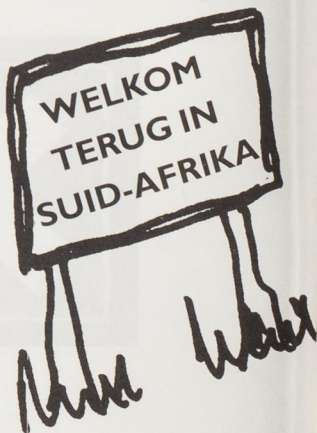 WELKOM
TERUG IN
SUID-AFRIKA